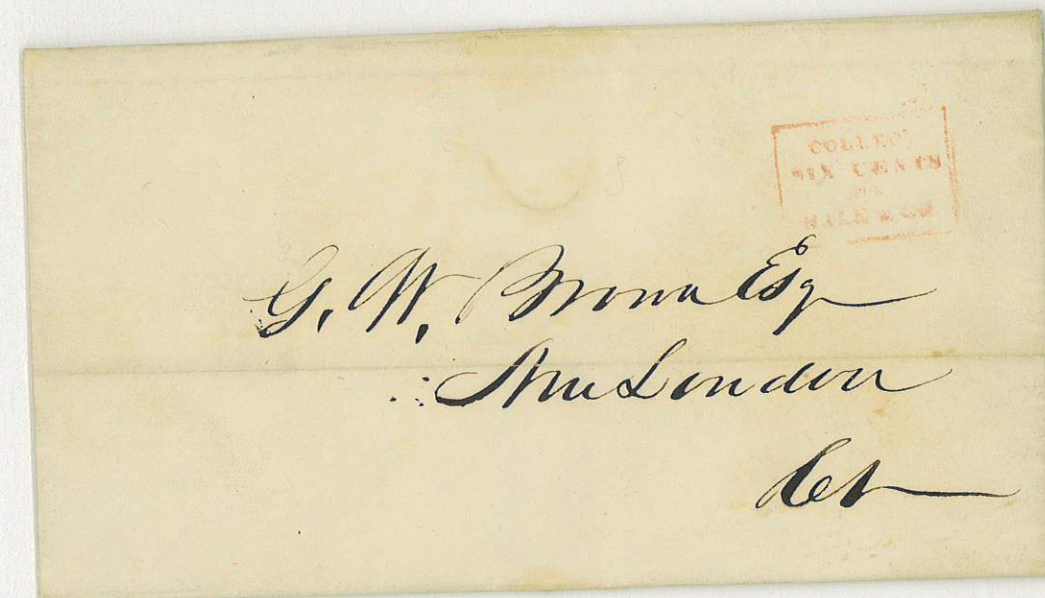 COLLECT
SIX CENTS
FOR
HALE & CO
G. W. Brown Esq
New London
Ct